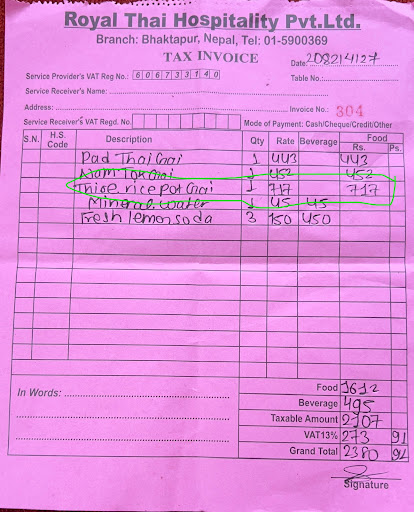 Royal Thai Hospitality Pvt.Ltd.
Branch: Bhaktapur, Nepal, Tel: 01-5900369
TAX INVOICE
Date: 2082/4/27
Service Provider's VAT Reg No.: 606733140
Table No.:
Service Receiver's Name:
Address:
Invoice No.: 304
Service Receiver's VAT Regd. No.
Mode of Payment: Cash/Cheque/Credit/Other
S.N. H.S. Code Description Qty Rate Beverage Food Rs. Ps.
Pad Thai Gai 1 443 443
Nam Tok Gai 1 452 452
rice pot Gai 1 717 717
Mineral water 1 45 45
Fresh lemon soda 3 150 450
In Words:
Food 1612
Beverage 495
Taxable Amount 2107
VAT13% 273 91
Grand Total 2380 91
Signature